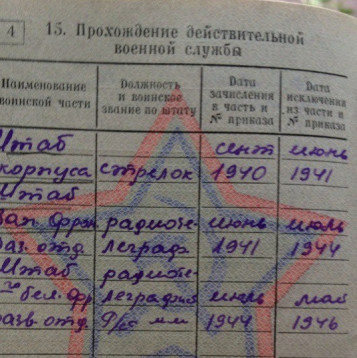 4
15. Прохождение действительной
военной службы
Наименование воинской части
Должность и воинское звание по штату
Дата зачисления в часть и № приказа
Дата исключения из части и № приказа
Штаб сент июнь
корпуса стрелок 1940 1941
Штаб
Зап. Фрон радиоте- июнь июль
раз. отд. леграф 1941 1944
Штаб радиоте-
бел. Фр леграфис июль май
разв. отд. 1944 1946